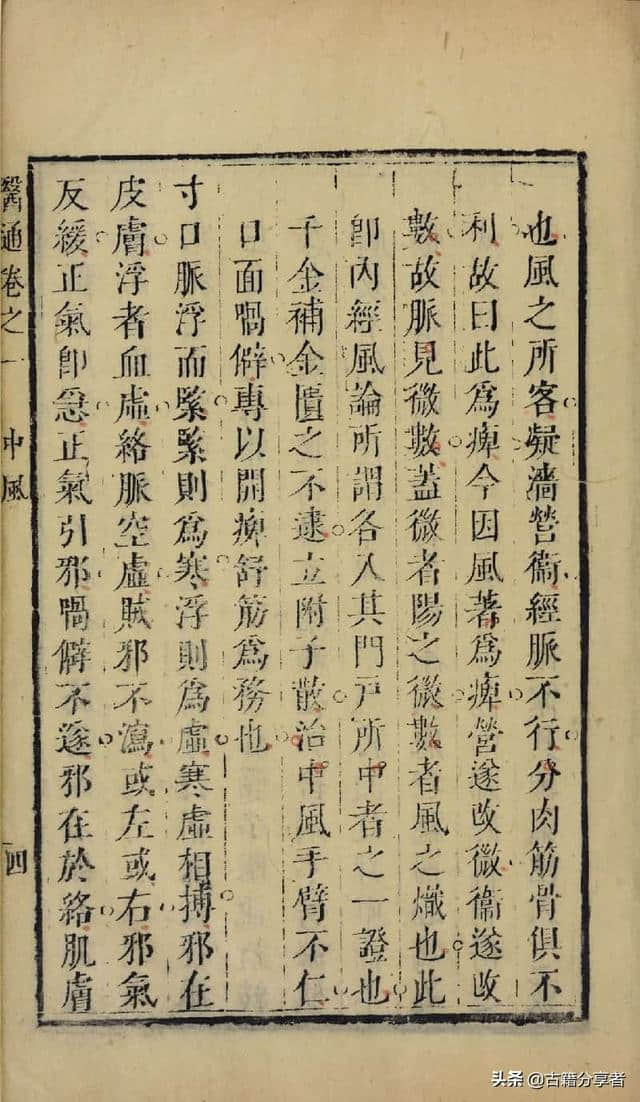 也風之所客凝濇營衞經脈不行分肉筋骨俱不
利故曰此為痺今因風著為痺營遂改微衞遂改
數故脈見微數蓋微者陽之微數者風之熾也此
卽內經風論所謂各入其門戸所中者之一證也
千金補金匱之不逮立附子散治中風手臂不仁
口面喎僻專以開痺舒筋為務也
寸口脈浮而緊緊則為寒浮則為虛寒虛相搏邪在
皮膚浮者血虛絡脈空虛賊邪不瀉或左或右邪氣
反緩正氣卽急正氣引邪喎僻不遂邪在於絡肌膚
醫通卷之一 中風 四
头条 @古籍分享者